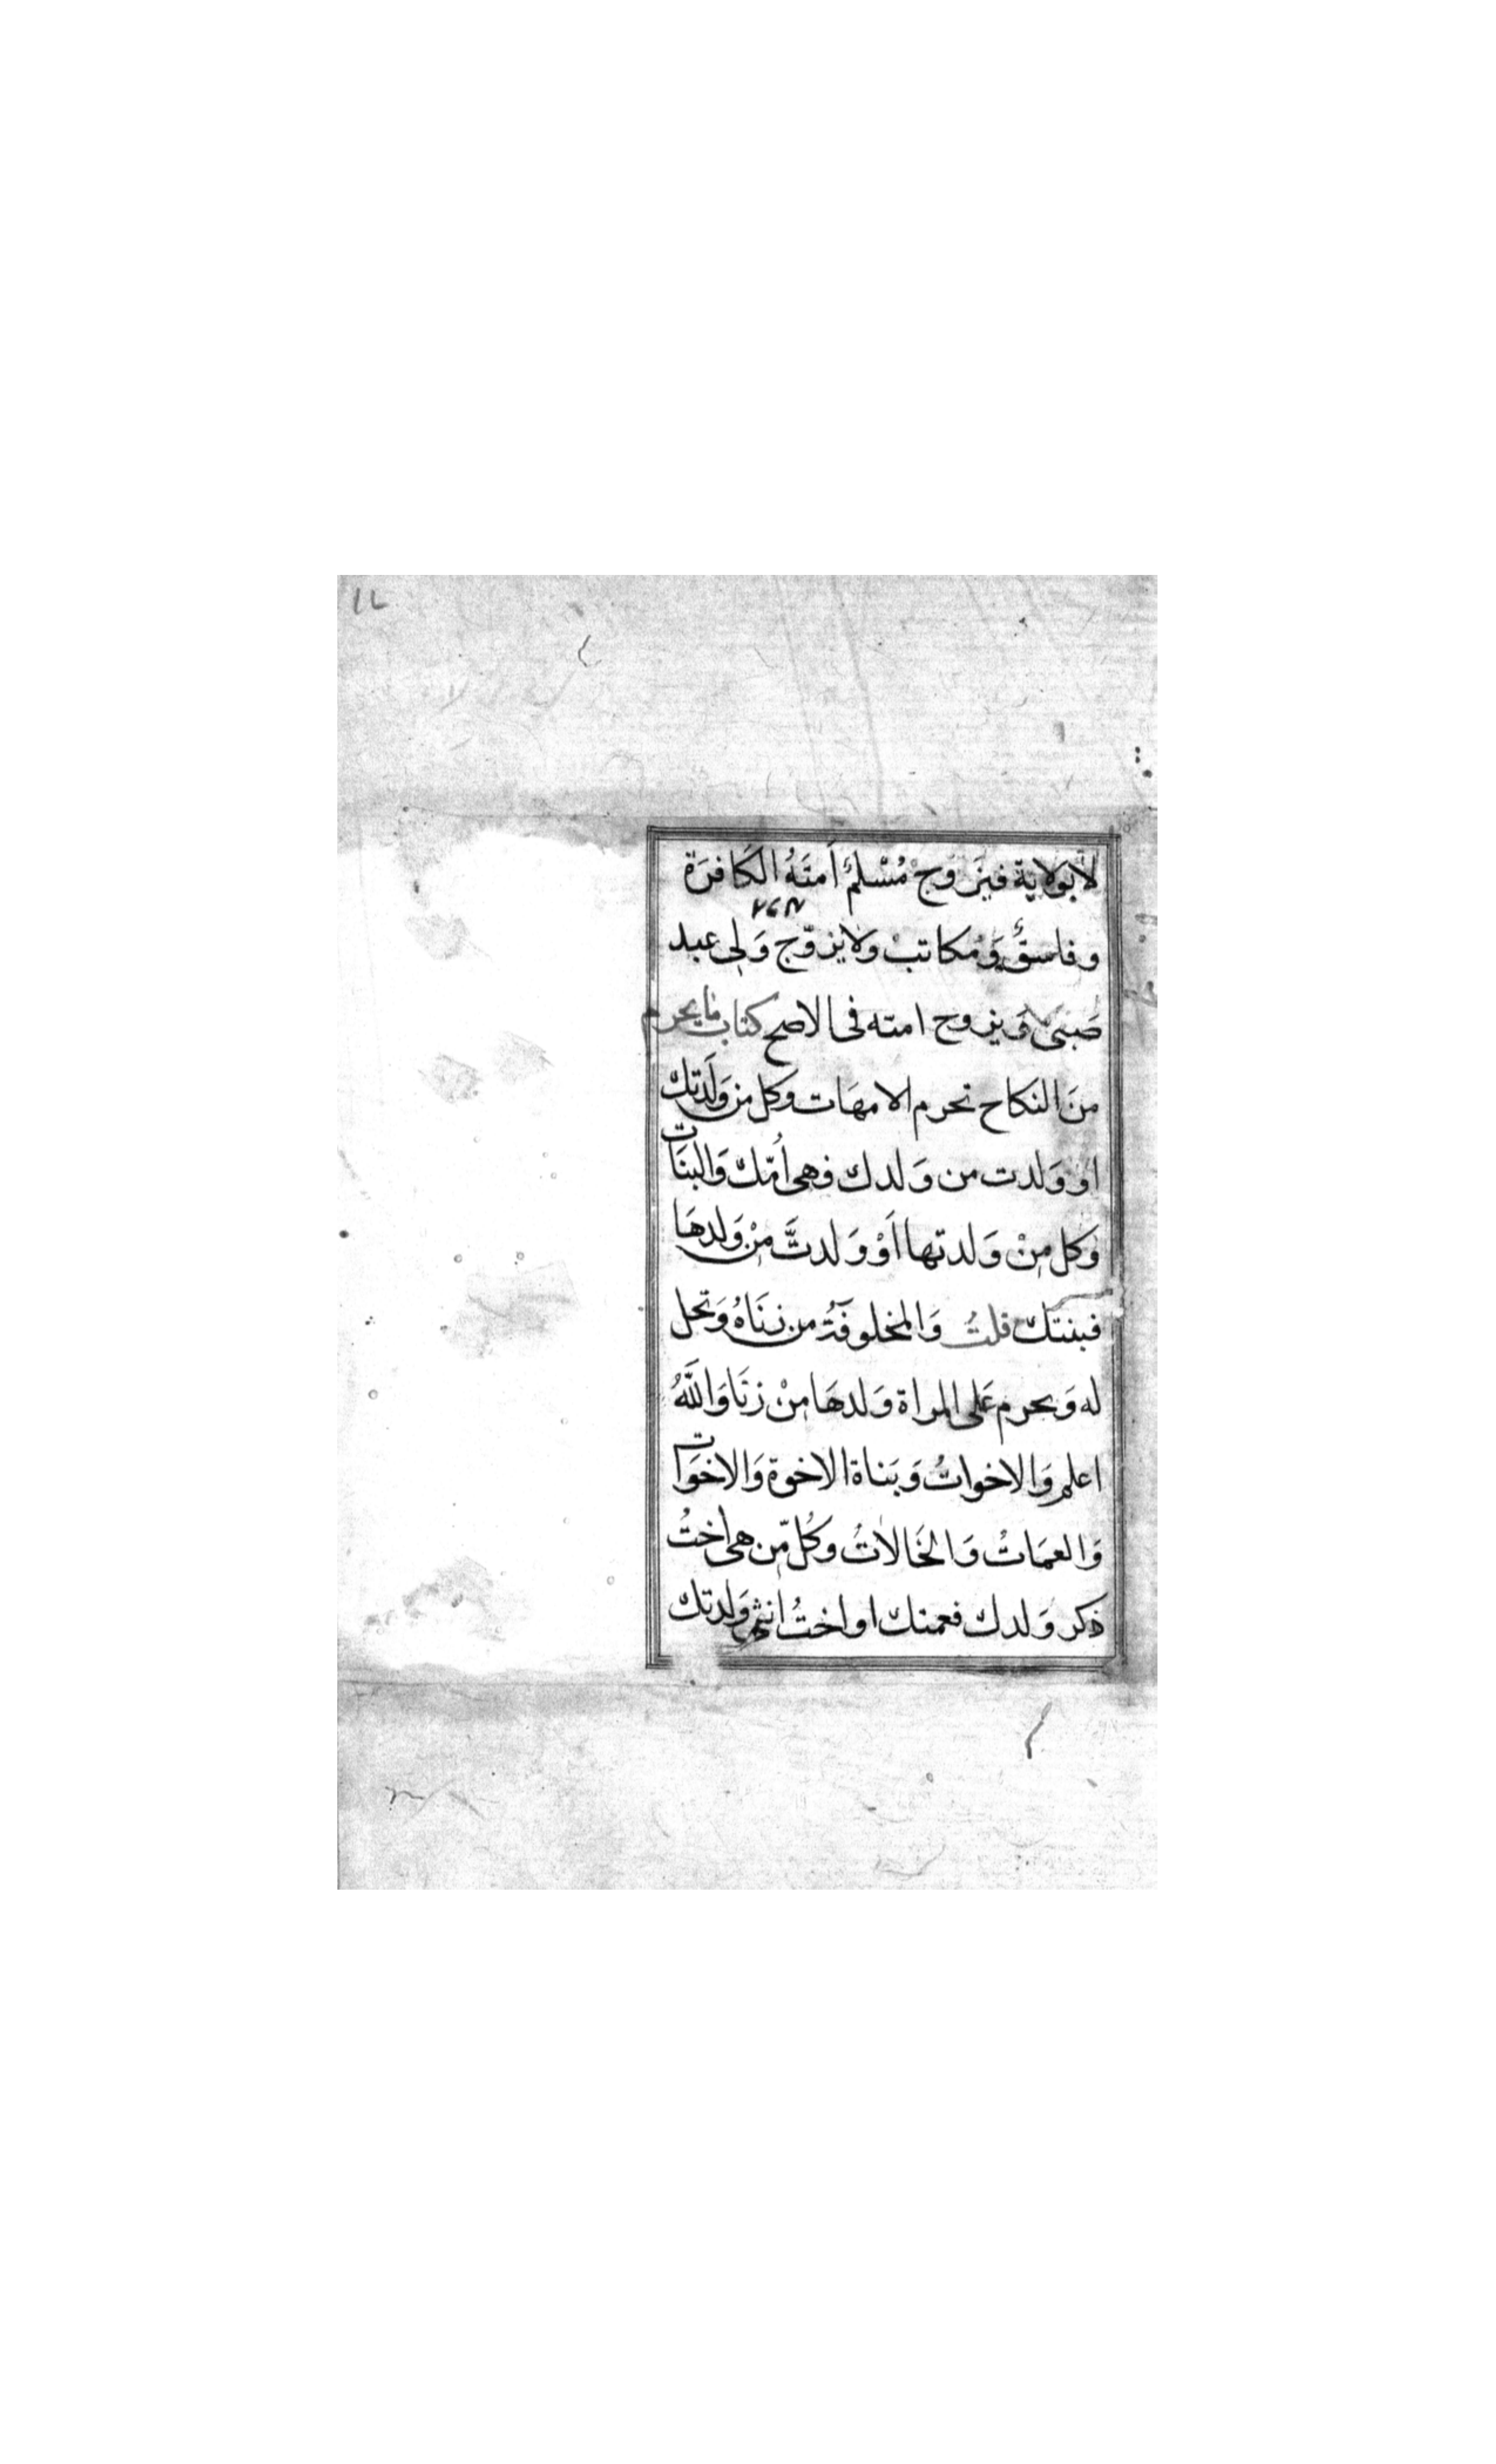 لا بولاية فيزَوّجْ مُسْلمٌ أمَتَهُ الكَافرَة
وفاسقٌ وَمُكاتبْ ولا يزوّج وَلى عبد
صَبىّ وَيزوج امته فى الاصح كتاب مَا يحرم
منَ النكَاح تحرم الامهَات وكل من وَلَدتك
او وَلدت من وَلدك فهى أُمّك وَالبنَات
وَكل مِنْ وَلدتها اَوْ وَلدتَّ مِنْ وَلدهَا
فبنتك قلتُ وَالمخلوقَةُ من زنَاهُ وَتحل
له وَيحرم عَلى المراة وَلدهَا مِنْ زنَا وَاللَّهُ
اعلم وَالاخواتُ وَبَناة الاخوة وَالاخوَات
وَالعمَاتْ وَالخَالاتُ وكُل مّن هى اختُ
ذكر وَلدك فعمتك او اختُ انثى وَلدتك